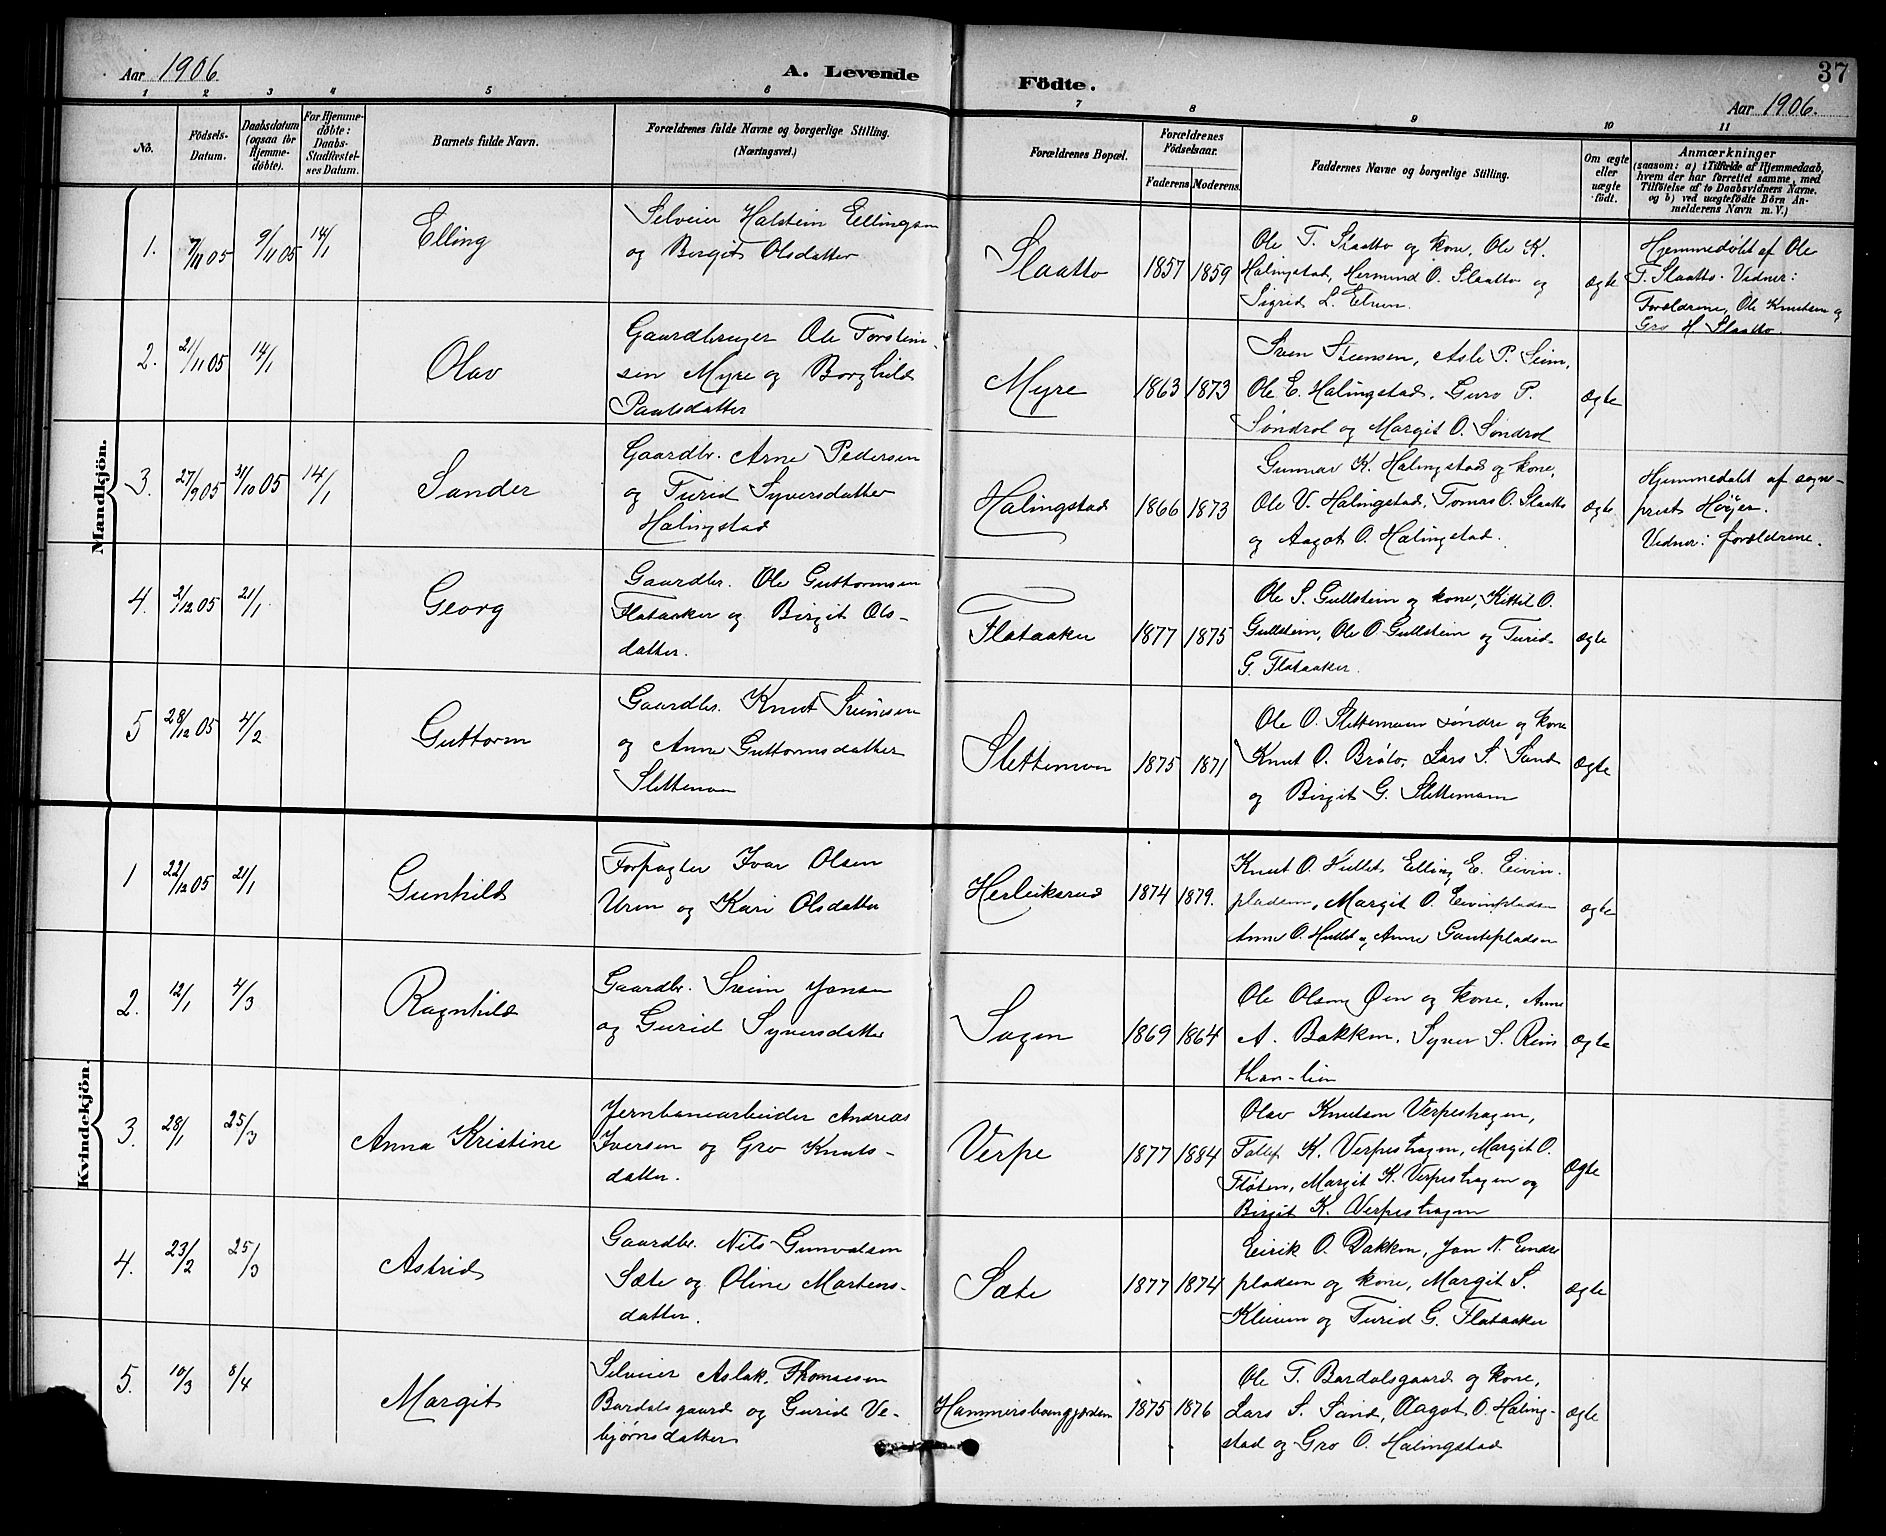 Aar 1906.
A. Levende Födte.
37
Aar 1906.
1 2 3 4 5 6 7 8 9 10 11
No.
Födsels-
Datum.
Daabsdatum
(ogsaa for
Hjemme-
döbte).
For Hjemme-
döbte:
Daabs-
Stadfæstel-
ses Datum.
Barnets fulde Navn.
Forældrenes fulde Navne og borgerlige Stilling.
(Næringsvei.)
Forældrenes Bopæl.
Forældrenes
Födselsaar.
Faderens
Moderens.
Faddernes Navne og borgerlige Stilling.
Om ægte
eller
uægte
födt.
Anmærkninger
(saasom: a) i Tilfælde af Hjemmedaab,
hvem der har forrettet samme, med
Tilföielse af to Daabsvidners Navne,
og b) ved uægtefödte Börn An-
melderens Navn m. V.)
Mandkjön.
1. 7/11 05 9/11 05 14/1 Elling
Selveier Halstein Ellingsen
og Birgit Olsdatter
Slaatto 1857 1859
Ole T. Slaatto og kone, Ole K.
Halingstad, Hermund O. Slaatto og
Sigrid L. Elven.
ægte
Hjemmedøbt af Ole
T. Slaatto. Vidner:
Forældrene, Ole Knutsen og
Gro H. Slaatto.
2. 21/11 05 14/1 Olav
Gaardbruger Ole Torstein-
sen Myre og Borghild
Paulsdatter
Myre 1863 1873
Svein Steensen, Asle P. Seim,
Ole E. Halingstad, Guro P.
Søndrol og Margit O. Søndrol
ægte
3. 27/9 05 31/10 05 14/1 Sander
Gaardbr. Arne Pedersen
og Turid Syversdatter
Halingstad
Halingstad 1866 1873
Gunnar K. Halingstad og kone,
Ole V. Halingstad, Tomas O. Slaatto
og Aagot O. Halingstad.
ægte
Hjemmedøbt af sogne-
prest Høyer.
Vidner: forældrene.
4. 2/12 05 21/1 Georg
Gaardbr. Ole Guttormsen
Flataaker og Birgit Ols-
datter.
Flataaker 1877 1875
Ole S. Gullstein og kone, Kittil O.
Gullstein, Ole O. Gullstein og Turid
G. Flataaker.
ægte
5 28/12 05 4/2 Guttorm
Gaardbr. Knut Sveinsen
og Anne Guttormsdatter
Slettemoen
Slettemoen 1875 1871
Ole O. Slettemoen søndre og kone
Knut O. Bråto, Lars S. Sand
og Birgit G. Slettemoen
ægte
Kvindekjön.
1 22/12 05 21/1 Gunhild
Forpagter Ivar Olsen
Uren og Kari Olsdatter
Herleiksrud 1874 1879.
Knut O. Hullet, Elling E. Eivin-
pladsen, Margit O. Eivinpladsen
Anne O. Hullet og Anne Gautepladsen
ægte
2. 12/1 4/3 Ragnhild
Gaardbr. Svein Jonsen
og Gurid Syversdatter
Sagen 1869 1864
Ole Olsen Øen og kone, Anne
A. Bakken, Syver S. Reins
ægte
3. 28/1 25/3 Anna Kristine
Jernbanearbeider Andreas
Iversen og Gro Knuts-
datter.
Verpe 1877 1884
Olav Knutson Verpeshagen,
Tollef K. Verpeshagen, Margit O.
Fløten, Margit K. Verpeshagen og
Birgit K. Verpeshagen
ægte
4. 23/2 25/3 Astrid
Gaardbr. Nils Gunvalsen
Sæte og Oline Martens-
datter.
Sæte 1877 1874
Eirik O. Bakken, Jon N. Endre
pladsen og kone, Margit S.
Kleiven og Turid G. Flataaker
ægte
5. 10/3 8/4 Margit
Selveier Aslak Thomesen
Bardalsgaard og Gurid Ve-
bjørnsdatter
Hammersboengjorden 1875 1876
Ole T. Bardalsgaard og kone,
Lars S. Sand, Aagot O. Haling-
stad og Gro O. Halingstad
ægte